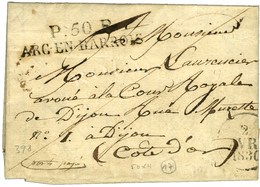 P. 50. P.
ARC-EN-BARROIS
A Monsieur
Monsieur Laurencier
avoué à la Cour Royale
de Dijon, Rue Musette
n° 1. à Dijon
Côte d'or
1830